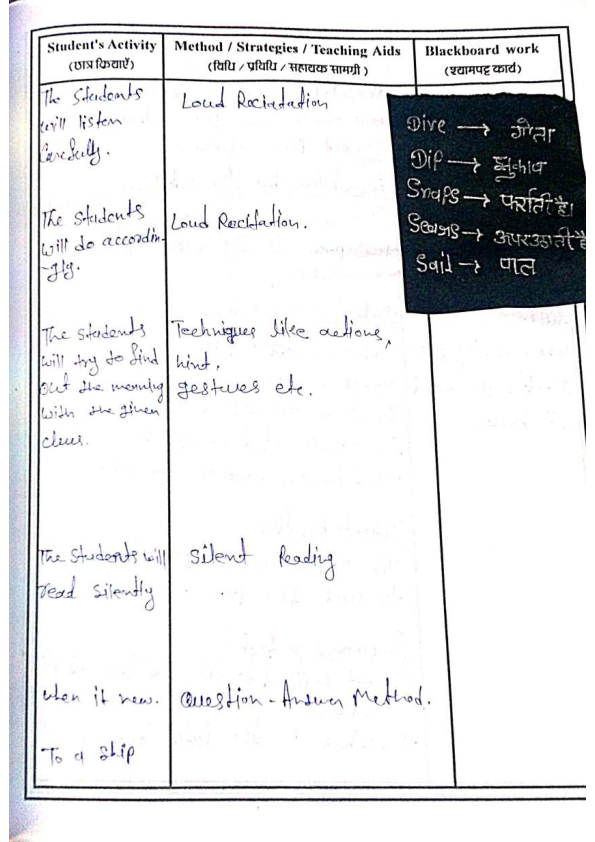 Student's Activity
(छात्र क्रियाएँ)
Method / Strategies / Teaching Aids
(विधि / प्रविधि / सहायक सामग्री)
Blackboard work
(श्यामपट्ट कार्य)
The Students
will listen
Carefully.
Loud Recitation
Dive → गोता
Dip → झुकाव
Snaps →
→
Sail → पाल
The Students
will do accordin-
-gly.
Loud Recitation.
The Students
will try to find
out the meaning
with the given
clues.
Techniques like actions,
hint,
gestures etc.
The Students will
read silently
Silent Reading
when it new.
Question-Answer Method.
To a Ship